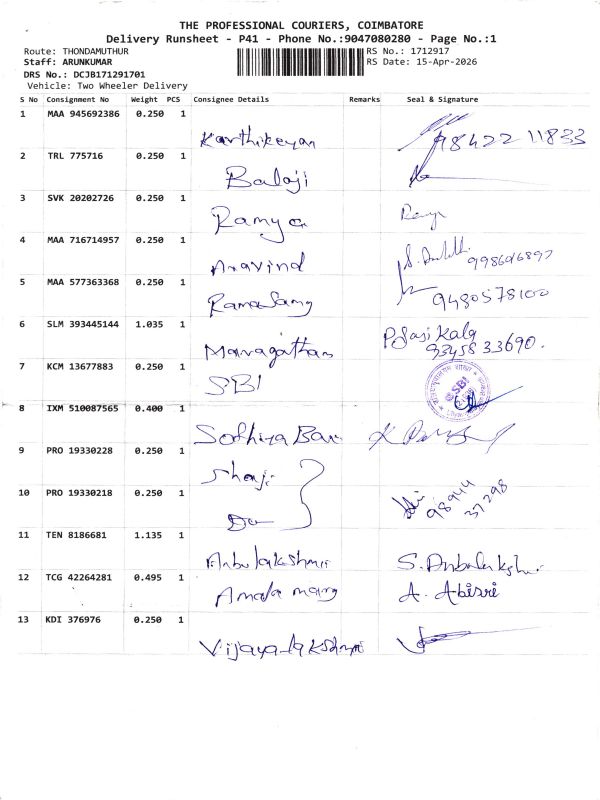 THE PROFESSIONAL COURIERS, COIMBATORE
Delivery Runsheet - P41 - Phone No.:9047080280 - Page No.:1
Route: THONDAMUTHUR RS No.: 1712917
Staff: ARUNKUMAR RS Date: 15-Apr-2026
DRS No.: DCJB171291701
Vehicle: Two Wheeler Delivery
S No Consignment No Weight PCS Consignee Details Remarks Seal & Signature
1 MAA 945692386 0.250 1
Karthikeyan 98422 11833
2 TRL 775716 0.250 1
Balaji
3 SVK 20202726 0.250 1
Ramya
4 MAA 716714957 0.250 1
Aravind
5 MAA 577363368 0.250 1
Ramasamy 9480578100
6 SLM 393445144 1.035 1
Maragatham P Sasi Kala
93458 33690.
7 KCM 13677883 0.250 1
SBI SBI
8 IXM 510087565 0.400 1
9 PRO 19330228 0.250 1
Shaji
10 PRO 19330218 0.250 1
Do 98944
37298
11 TEN 8186681 1.135 1
Anbulakshmi S. Anbulakshmi
12 TCG 42264281 0.495 1
Amala mary A. Abisri
13 KDI 376976 0.250 1
Vijayalakshmi